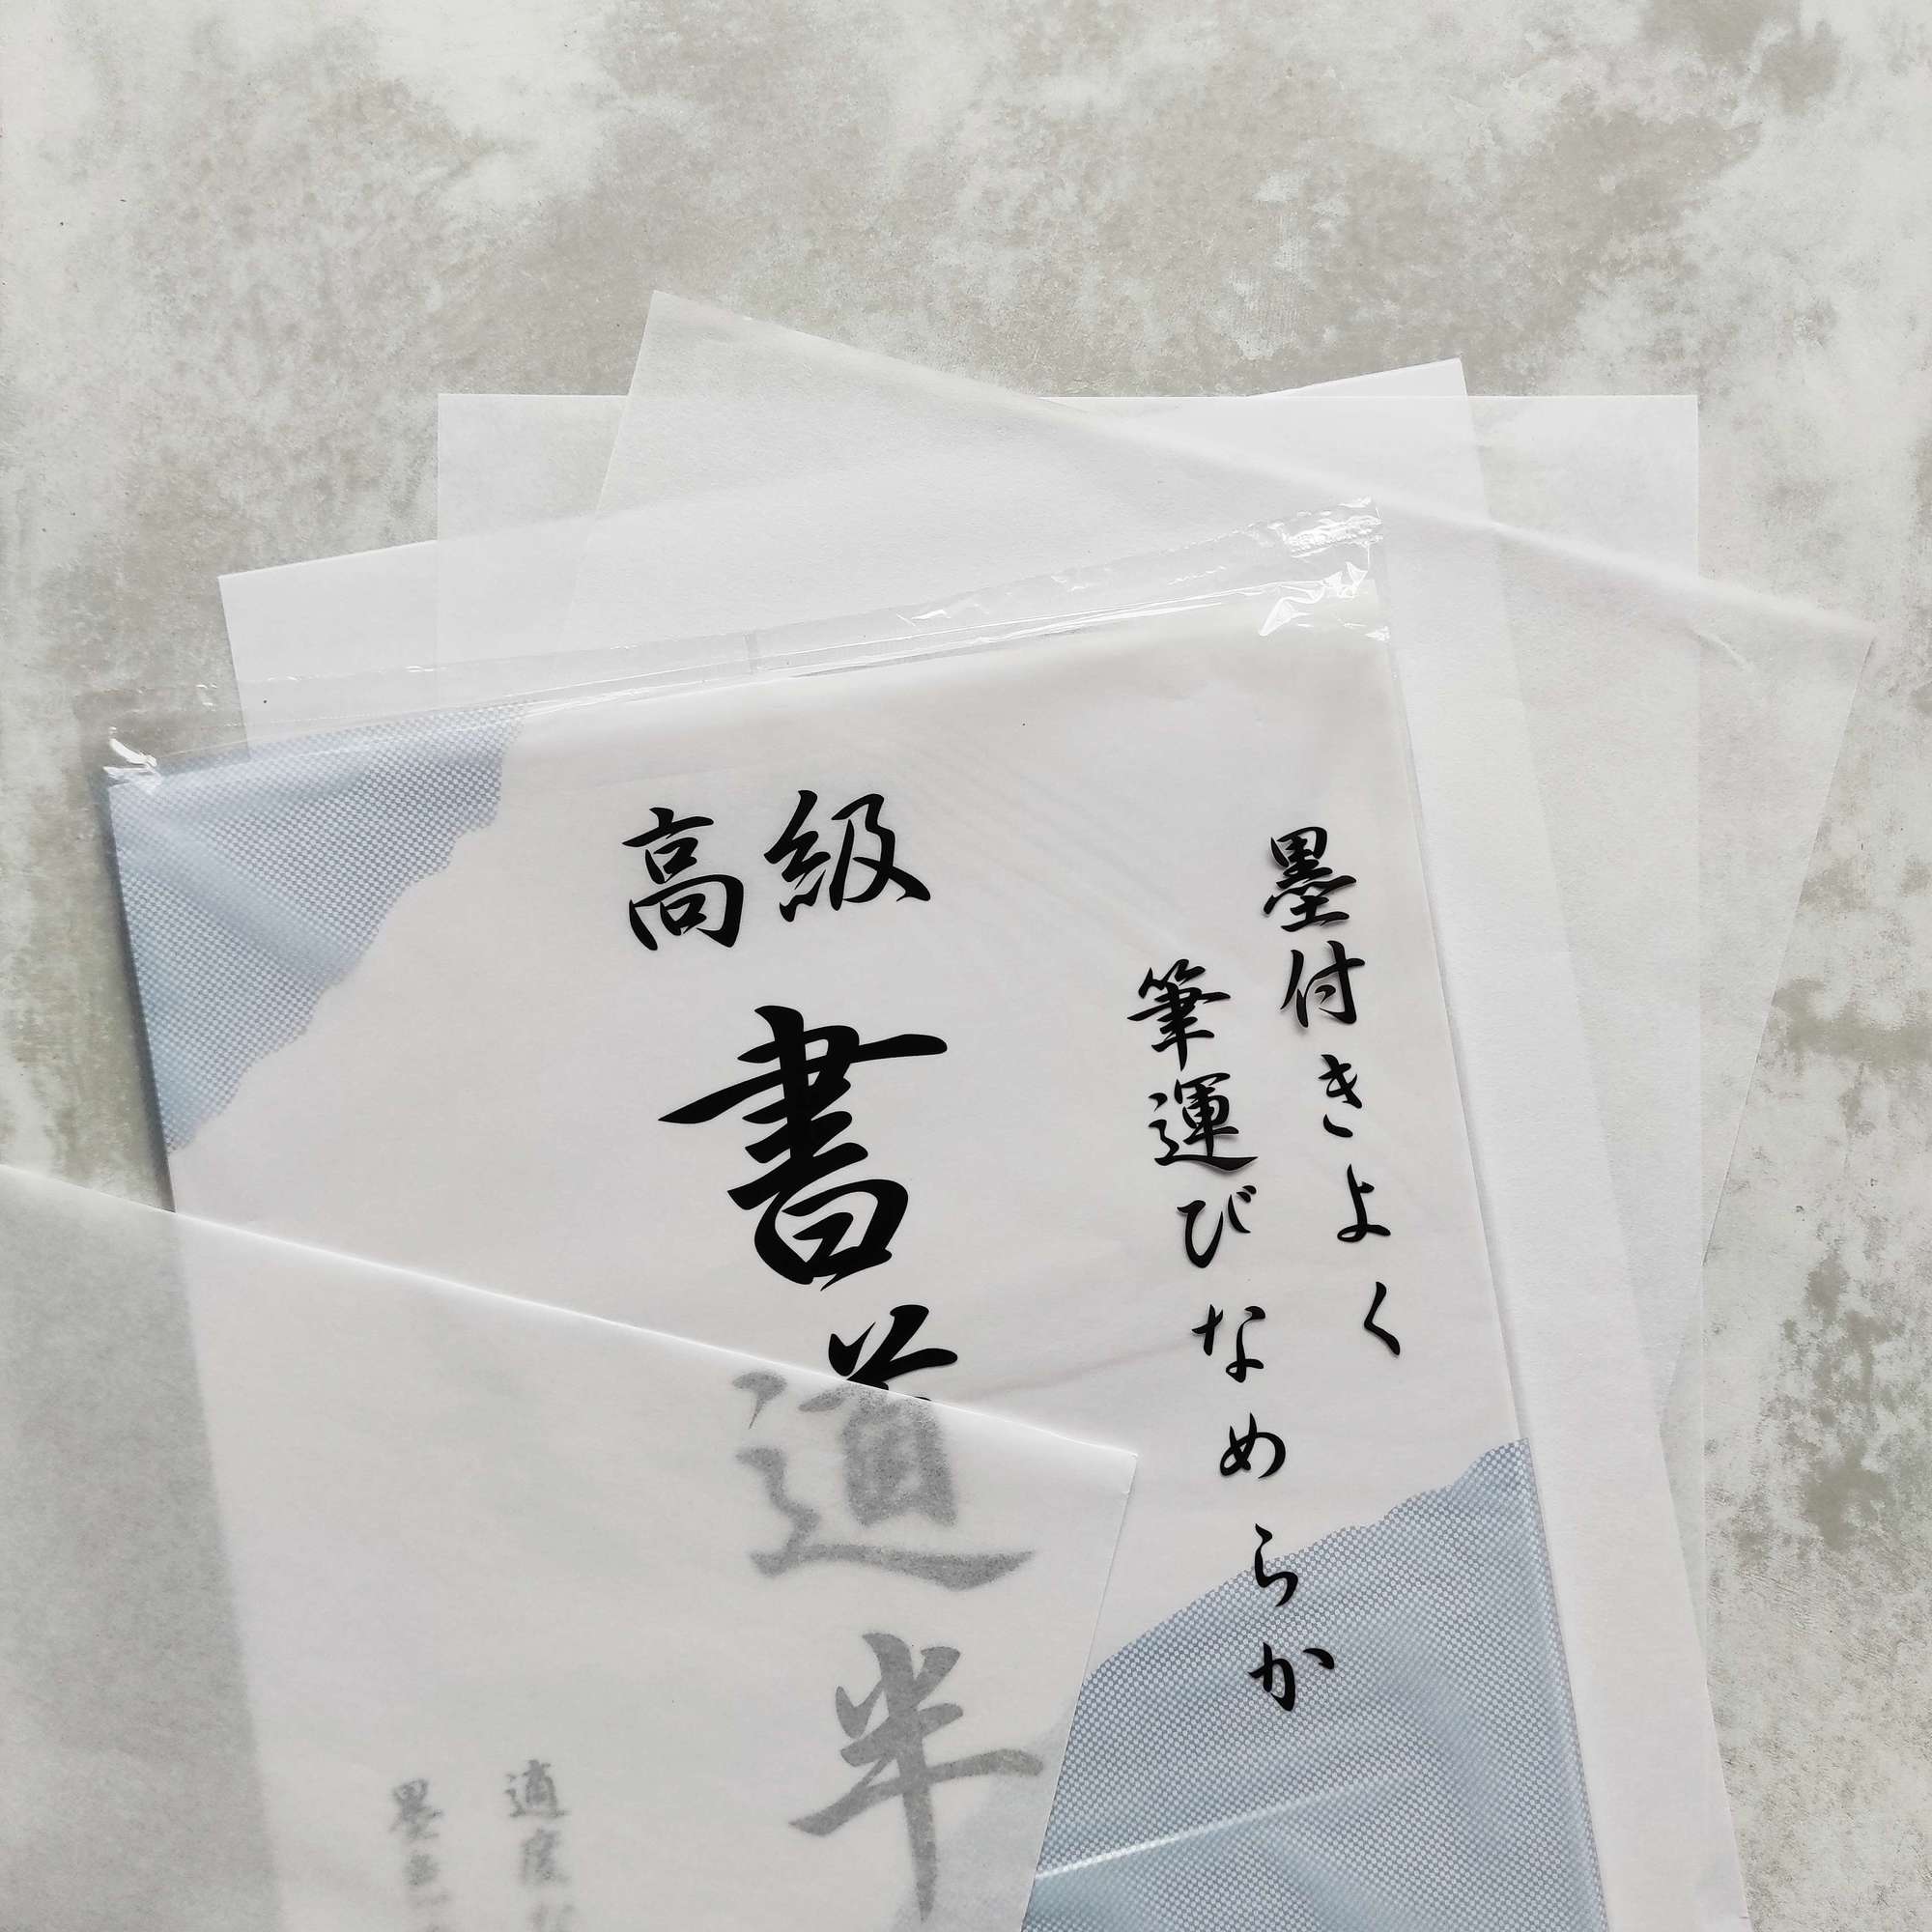 墨付きよく
筆運びなめらか
高級
書道半
適度な
墨色